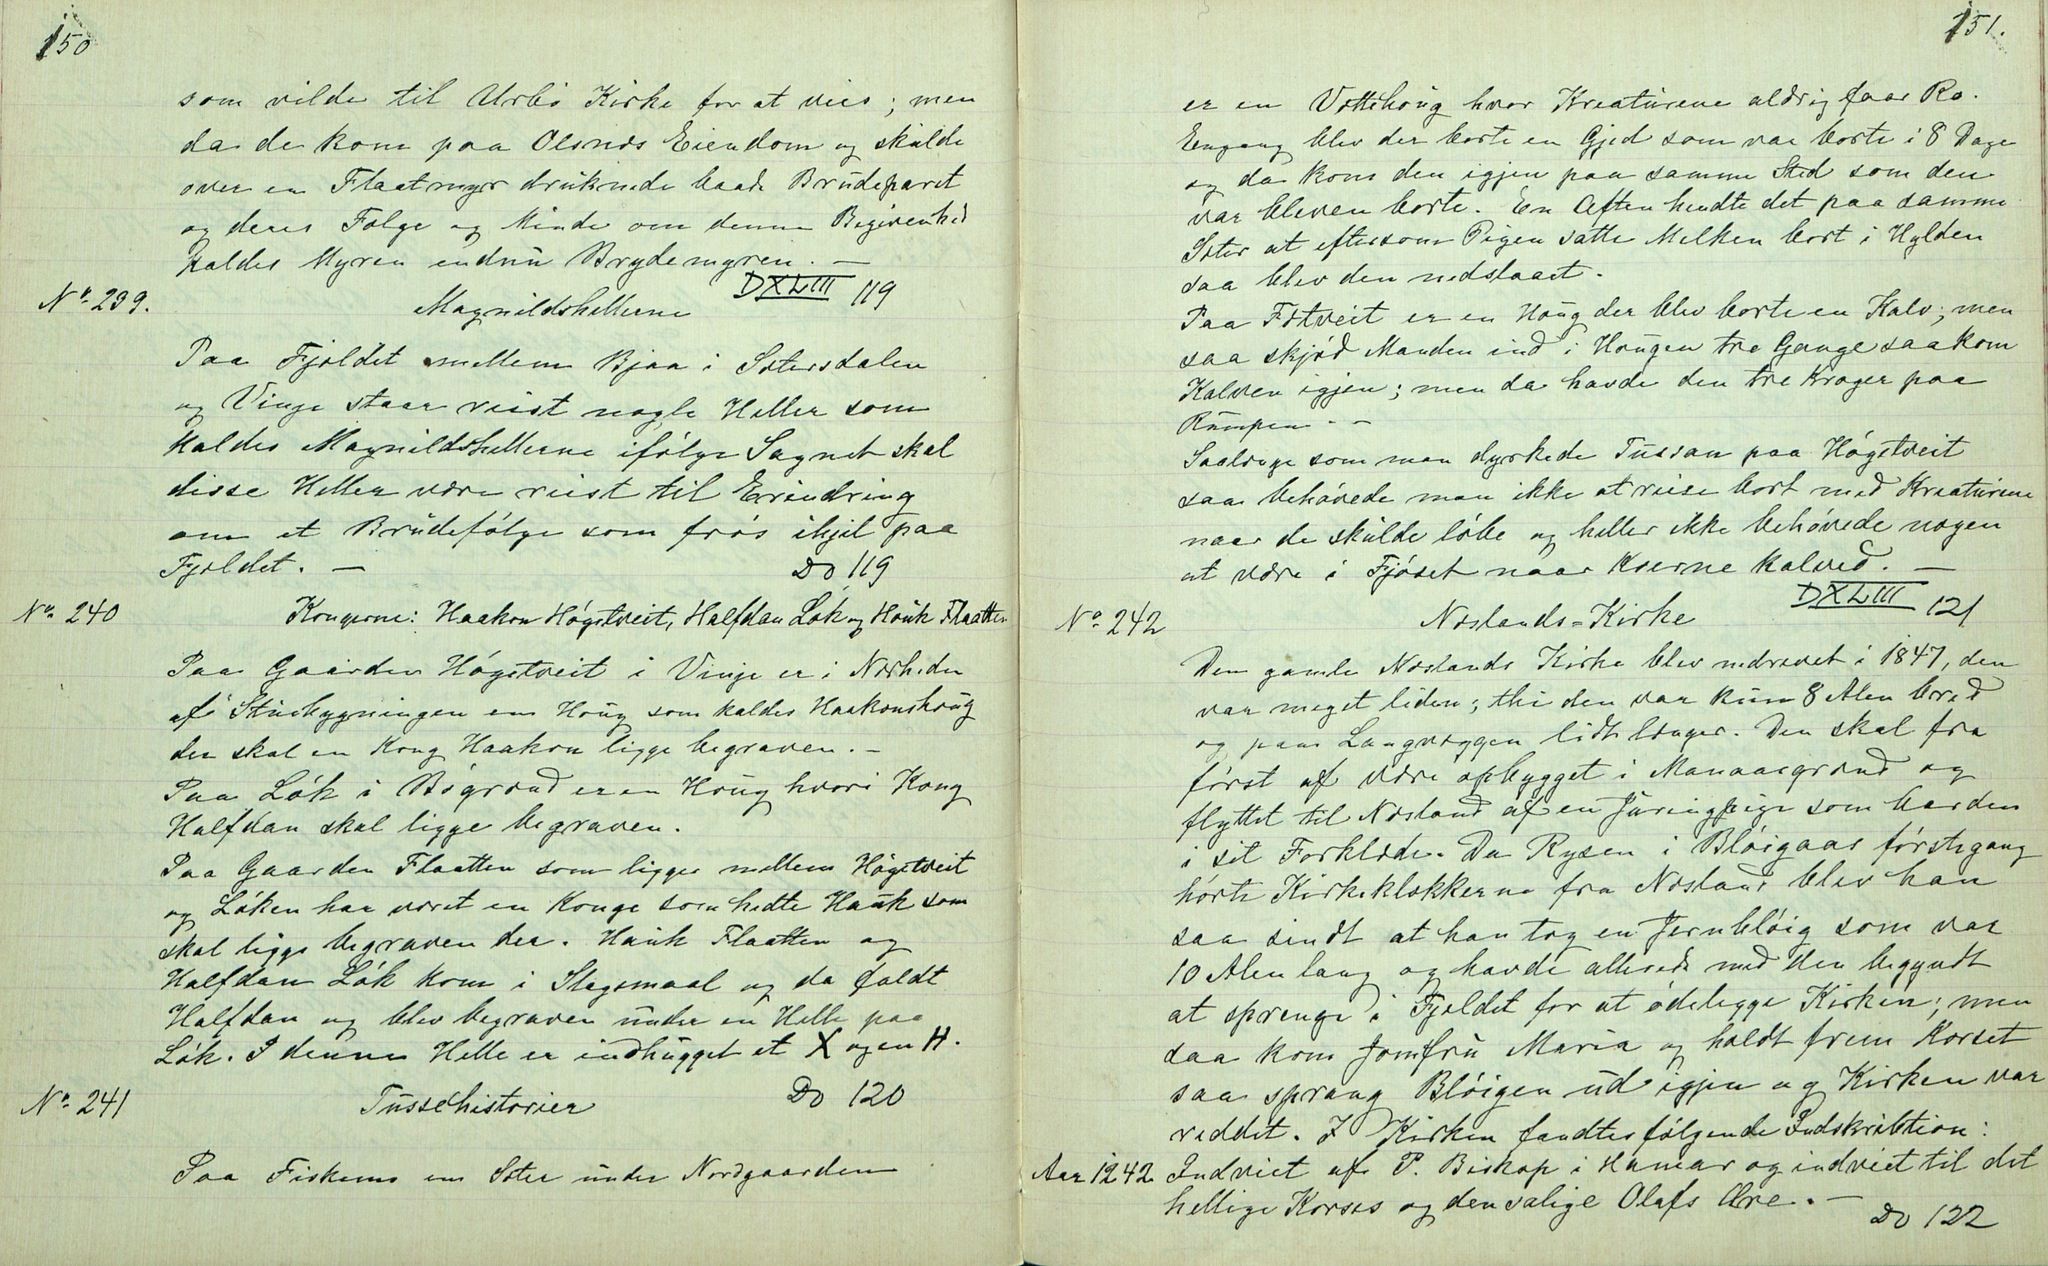 150
som vilde til Urbø Kirke for at vies; men
da de kom paa Olsnes Eiendom og skulde
over en Flaatmyr druknede baade Brudeparet
og deres Følge og Minde om denne Begivenhed
kaldes Myren endnu Brydemyren. —
DXLIII 119
No. 239. Magnildshellerne
Paa Fjeldet mellem Bjaa i Sætersdalen
og Vinje staar reist nogle Heller som
kaldes Magnildshellerne ifølge Sagnet skal
disse Heller være reist til Erindring
om et Brudefølge som frøs ihjel paa
Fjeldet. — Do 119
No. 240 Kongerne: Haakon Høgstveit, Halfdan Løk og Hauk Flaatten
Paa Gaarden Høgstveit i Vinje er i Nærheden
af Stuebygningen en Houg som kaldes Haakonshoug
der skal en Kong Haakon ligge begraven. —
Paa Løk i Bøgrænd er en Houg hvori Kong
Halfdan skal ligge begraven.
Paa Gaarden Flaatten som ligger mellem Høgstveit
og Løken har været en Konge som hedte Hauk som
skal ligge begraven der. Hauk Flaatten og
Halfdan Løk kom i Slagsmaal og da faldt
Halfdan og blev begraven under en Helle paa
Løk. I denne Helle er indhugget et X og en H.
Do 120
No. 241 Tussehistorier
Paa Fiskems en Sæter under Nordgaarden
151.
er en Vættehoug hvor Kreaturene aldrig faar Ro.
Engang blev der borte en Gjed som var borte i 8 Dage
og da kom den igjen paa samme Sted som den
var bleven borte. En Aften hendte det paa samme
Sæter at eftersom Pigen satte Melken bort i Hylden
saa blev den nedslaaet.
Paa Fætveit er en Houg der blev borte en Kalv; men
saa skjød Manden ind i Hougen tre Gange saa kom
Kalven igjen; men da havde den tre Kroger paa
Rumpen. —
Saalænge som man dyrkede Tussan paa Høgstveit
saa behøvede man ikke at reise bort med Kreaturene
naar de skulde løbe og heller ikke behøvede nogen
at være i Fjøset naar Kuerne kalved. —
DXLIII 121
No. 242 Næslands=Kirke
Den gamle Næslands Kirke blev nedrevet i 1847, den
var meget liden; thi den var kun 8 Alen bred
og paa Langvæggen lidt længer. Den skal fra
først af være opbygget i Manaasgrænd og
flyttet til Næsland af en Juringpige som bar den
i sit Forklæde. Da Rysen i Bløigaas førstegang
hørte Kirkeklokkerne fra Næsland blev han
saa sindt at han tog en Jernbløig som var
10 Alen lang og havde allerede med den begyndt
at sprenge i Fjeldet for at ødelegge Kirken; men
saa kom Jomfru Maria og holdt frem Korset
saa sprang Bløigen ud igjen og Kirken var
reddet. I Kirken fandtes følgende Indskribtion:
Aar 1242 Indviet af P. Biskop i Hamar og indviet til det
hellige Korses og den salige Olafs Ære. —
Do 122